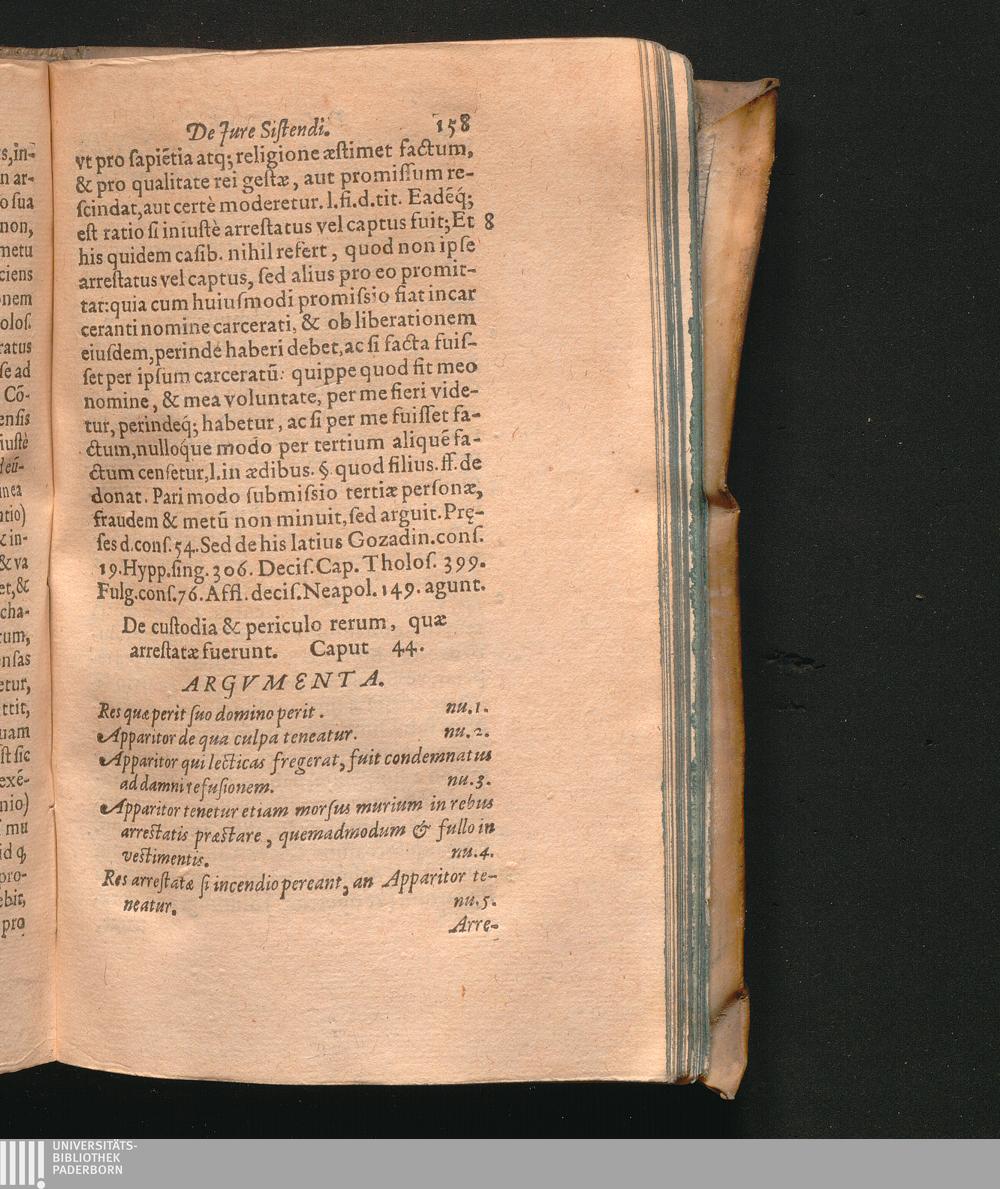 De Jure Sistendi. 158
vt pro sapiẽtia atq; religione æstimet factum,
& pro qualitate rei gestæ, aut promissum re-
scindat, aut certè moderetur. l. fi. d. tit. Eadẽq́;
est ratio si iniustè arrestatus vel captus fuit; Et 8
his quidem casib. nihil refert, quod non ipse
arrestatus vel captus, sed alius pro eo promit-
tat: quia cum huiusmodi promissio fiat incar
ceranti nomine carcerati, & ob liberationem
eiusdem, perinde haberi debet, ac si facta fuis-
set per ipsum carceratũ: quippe quod fit meo
nomine, & mea voluntate, per me fieri vide-
tur, perindeq́; habetur, ac si per me fuisset fa-
ctum, nulloque modo per tertium aliquẽ fa-
ctum censetur, l. in ædibus. §. quod filius. ff. de
donat. Pari modo submissio tertiæ personæ,
fraudem & metũ non minuit, sed arguit. Prę-
ses d. cons. 54. Sed de his latius Gozadin. cons.
19. Hypp. sing. 306. Decis. Cap. Tholos. 399.
Fulg. cons. 76. Affl. decis. Neapol. 149. agunt.
De custodia & periculo rerum, quæ
arrestatæ fuerunt. Caput 44.
ARGVMENTA.
Res quæ perit suo domino perit. nu. 1.
Apparitor de qua culpa teneatur. nu. 2.
Apparitor qui lecticas fregerat, fuit condemnatus
ad damni refusionem. nu. 3.
Apparitor tenetur etiam morsus murium in rebus
arrestatis præstare, quemadmodum & fullo in
vestimentis. nu. 4.
Res arrestatæ si incendio pereant, an Apparitor te-
neatur. nu. 5.
Arre-
s, in-
n ar-
o sua
non,
metu
ciens
onem
olos.
ratus
se ad
Cõ-
ensis
iustè
deũ-
in ea
atio)
& in-
& va
et, &
cha-
rum,
ensas
etur,
ttit,
uam
st sic
exẽ-
nio)
mu
id q
pro-
ebit,
pro
UNIVERSITÄTS-
BIBLIOTHEK
PADERBORN